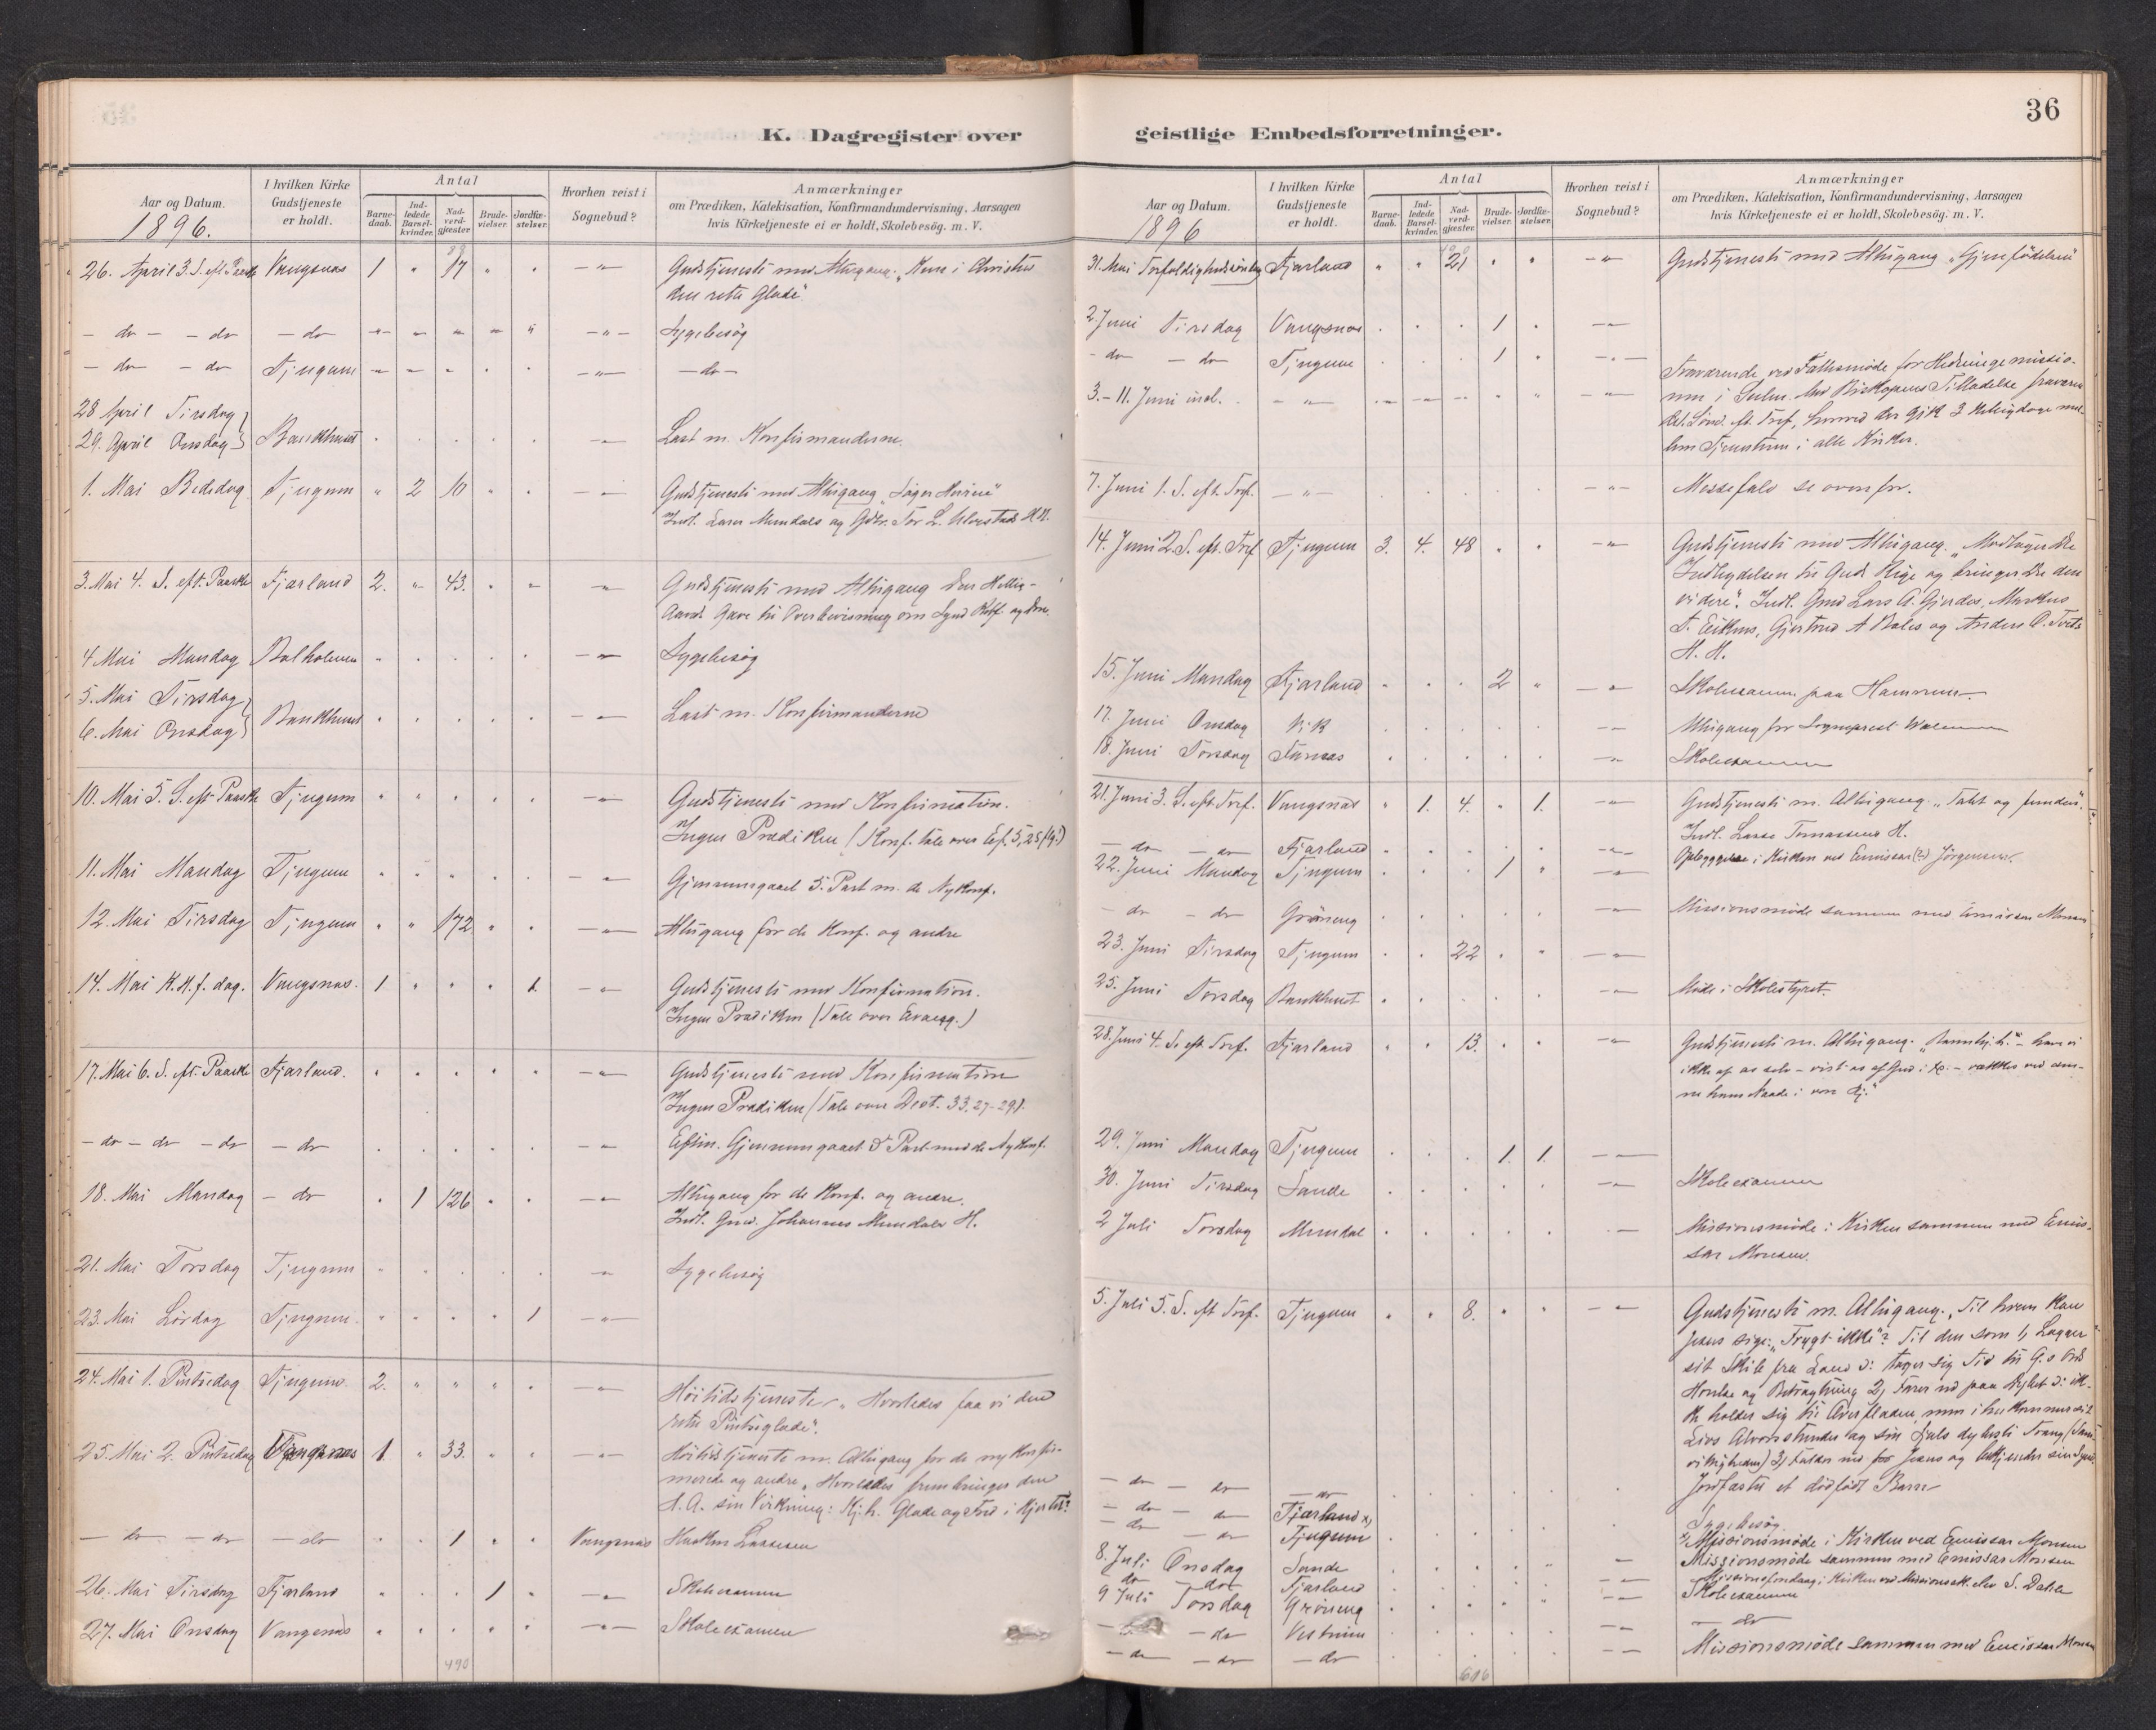 36
K. Dagregister over
geistlige Embedsforretninger.
Aar og Datum.
1896.
I hvilken Kirke Gudstjeneste er holdt.
Antal
Barne-daab.
Ind-ledede Barsel-kvinder.
Nad-verd-gjæster
Brude-vielser.
Jordfæ-stelser.
Hvorhen reist i Sognebud?
Anmærkninger
om Prædiken, Katekisation, Konfirmandundervisning, Aarsagen
hvis Kirketjeneste ei er holdt, Skolebesög. m. V.
26. April 3. S. eft. Paaske Vangsnes 1 " 17 " " Gudstjeneste med Altergang. "Kun i Christus
den rette Glæde".
- do - - do - do Sygebesög
- do - - do Tjugum - do -
28 April Tirsdag
29. April Onsdag Bankhuset Læst m. Konfirmanderne.
1. Mai Bededag Tjugum " 2 10 Gudstjeneste med Altergang "Söger Herren"
Indl. Lars Mundals og
3. Mai 4. S. eft. Paaske Fjærland 2. " 43. Gudstjeneste med Altergang Den Hellig-
Aands Gave til Overbevisning om Synd Retf. og Dom.
4 Mai Mandag Balholmen Sygebesög
5. Mai Tirsdag
6. Mai Onsdag Bankhuset Læst m. Konfirmanderne
10. Mai 5. S. eft. Paaske Tjugum Gudstjeneste med Konfirmation.
Ingen Prædiken (Konf. tale over
11. Mai Mandag Tjugum Gjennemgaaet 5. Part m. de Nykonf.
12. Mai Tirsdag Tjugum " " 172 Altergang for de Konf. og andre
14. Mai K. H. f. dag. Vangsnes. 1 " " " 1. Gudstjeneste med Konfirmation.
Ingen Prædiken (Tale over Evang.)
17. Mai 6. S. eft. Paaske Fjærland. Gudstjeneste med Konfirmation
Ingen Prædiken (Tale over Deot. 33, 27-29).
- do - do - do - do Eftm. Gjennemgaaet 5 Part med de Nykonf.
18. Mai Mandag - do . 1 126 Altergang for de Konf. og andre.
Indl. Johannes Mundals H.
21. Mai Torsdag Tjugum Sygebesög
23. Mai Lördag Tjugum 1
24. Mai 1. Pintsedag Tjugum. 2. Höitidstjeneste. "Hvorledes faa vi den
rette Pintseglæde".
25. Mai 2. Pintsedag Vangsnes 1. " 33. Höitidstjeneste m. Altergang for de nykonfir-
merede og andre. "Hvorledes frembringer den
H. A. sin Virkning: Kj.h. Glæde og Fred i Hjertet?
- do - do - do . . 1 Vangsnes
26. Mai Tirsdag Fjærland 1 Skoleexamen
27. Mai Onsdag Vangsnes Skoleexamen
490
Aar og Datum.
1896
I hvilken Kirke Gudstjeneste er holdt.
Antal
Barne-daab.
Ind-ledede Barsel-kvinder.
Nad-verd-gjæster.
Brude-vielser.
Jordfæ-stelser.
Hvorhen reist i Sognebud?
Anmærkninger
om Prædiken, Katekisation, Konfirmandundervisning, Aarsagen
hvis Kirketjeneste ei er holdt, Skolebesög. m. V.
31. Mai Trefoldighedssöndag Fjærland " " 21 Gudstjeneste med Altergang "Gjenfödelsen"
2. Juni Tirsdag Vangsnes 1
- do - do Tjugum 1
3. - 11. Juni incl. Fraværende ved Fællesmöde for Hedningemissio-
nen i Med Biskopens Tilladelse fraværen
hvorved der gik 3 Helligdage mel-
lem Tjenesten i alle Kirker.
7. Juni 1. S. eft. Tref. Messefald se ovenfor.
14. Juni 2. S. eft. Tref Tjugum 3. 4. 48 Gudstjeneste med Altergang. "Modtager De
Indbydelsen til Guds Rige og bringer De den
videre". Indl. Lars A. Gjerdes, Markus
Gjertrud A Bales og Anders
H. H.
15. Juni Mandag Fjærland 2 Skoleexamen paa Hamrum
17. Juni Onsdag Altergang for Sogneprest
18. Juni Torsdag Skoleexamen
21. Juni 3. S. eft. Tref. Vangsnes " 1. 4. " 1. Gudstjeneste m. Altergang. "Tabt og funden".
Indl. Lasse Tomassens H.
- do - do Fjærland Opbyggelse i Kirken ved Emissær (?) Jörgensen.
22. Juni Mandag Tjugum 1
- do - do Gröneng Missionsmöde sammen med Emissær Monsen
23. Juni Tirsdag Tjugum 22
25. Juni Torsdag Bankhuset Möde i Skolestyret.
28. Juni 4. S. eft Tref. Fjærland " " 13. Gudstjeneste m. Altergang. "Barmhj.h." - have vi
ikke af os selv -
29. Juni Mandag Tjugum 1. 1.
30. Juni Tirsdag Sande Skoleexamen
2 Juli Torsdag Mundal Missionsmöde i Kirken sammen med Emis-
sær Monsen.
5. Juli 5. S. eft Tref. Tjugum " " 8. Gudstjeneste m. Altergang. "Til hvem kan
Jesus sige: "Frygt ikke"? Til den som 1) Lægger
sit Skib fra Land tager sig Tid til G.s Ords
Hörelse og Betragtning 2) Farer ud paa Dybet
holder sig til Overfladen, men
Livs Alvorsstunder og sin Sjæls dybeste Trang
3) Falder ned for Jesus og bekjender sin Synd.
- do - do - do Jordfæstet et dödfödt Barn
- do - do Fjærland x) Sygebesög
- do - do Tjugum x) Missionsmöde i Kirken ved Emissær Monsen
8. Juli Onsdag Sande Missionsmöde sammen med Emissær Monsen
do do Fjærland
9 Juli Torsdag Gröneng Skoleexamen
- do Vestreim - do
- do - do - do Missionsmöde sammen med Emissær Monsen
606